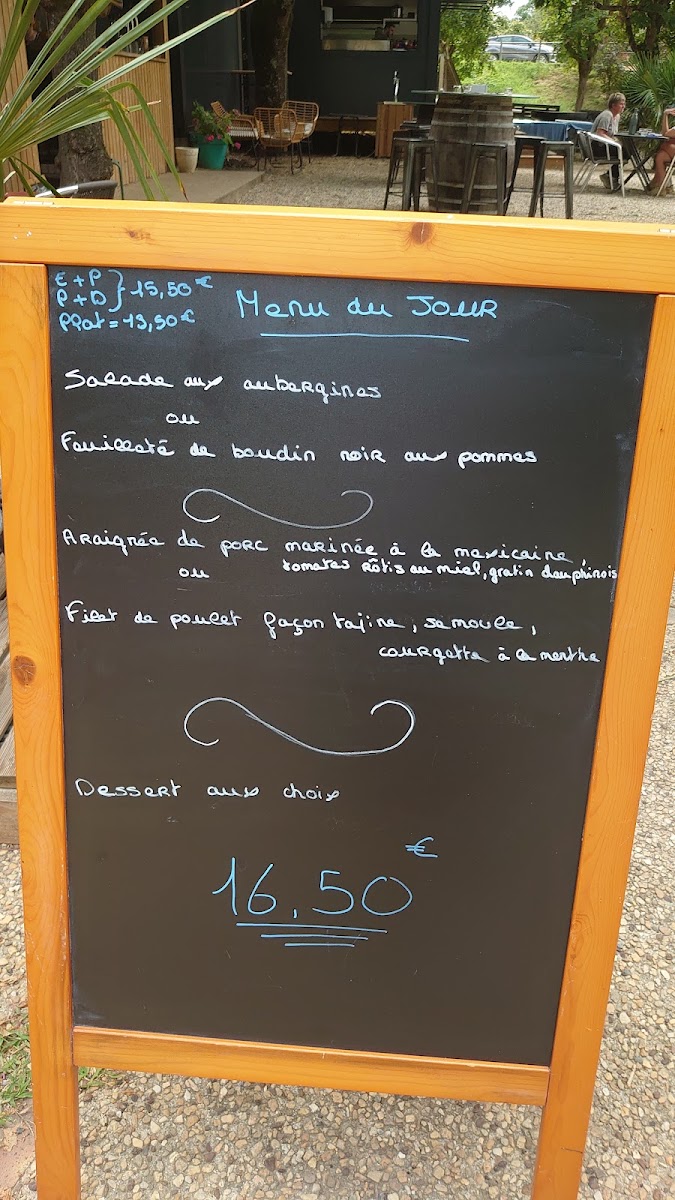 E + P
P + D } 15,50 €
Plat = 13,50 €
Menu du Jour
Salade aux aubergines
ou
Feuilleté de boudin noir aux pommes
Araignée de porc marinée à la mexicaine,
tomates rôtis au miel, gratin dauphinois
ou
Filet de poulet façon tajine, semoule,
courgette à la menthe
Dessert aux choix
16,50 €